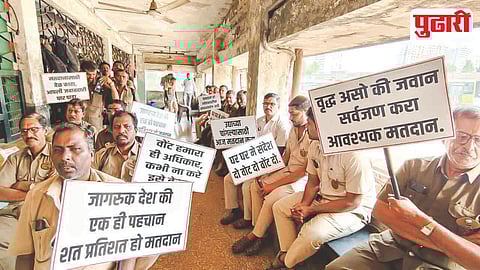 पुढारी
मतदानासाठी
वेळ काढा,
आपली जबाबदारी
पार पाडा
वोट हमारा
ही अधिकार,
कभी ना करे
इसे
उद्याच्या
चांगल्यासाठी
आज मतदान
घर घर मे संदेश
दो वोट दो वोट दो.
वृद्ध असो की जवान
सर्वजण करा
आवश्यक मतदान.
जागरुक देश की
एक ही पहचान
शत प्रतिशत हो मतदान